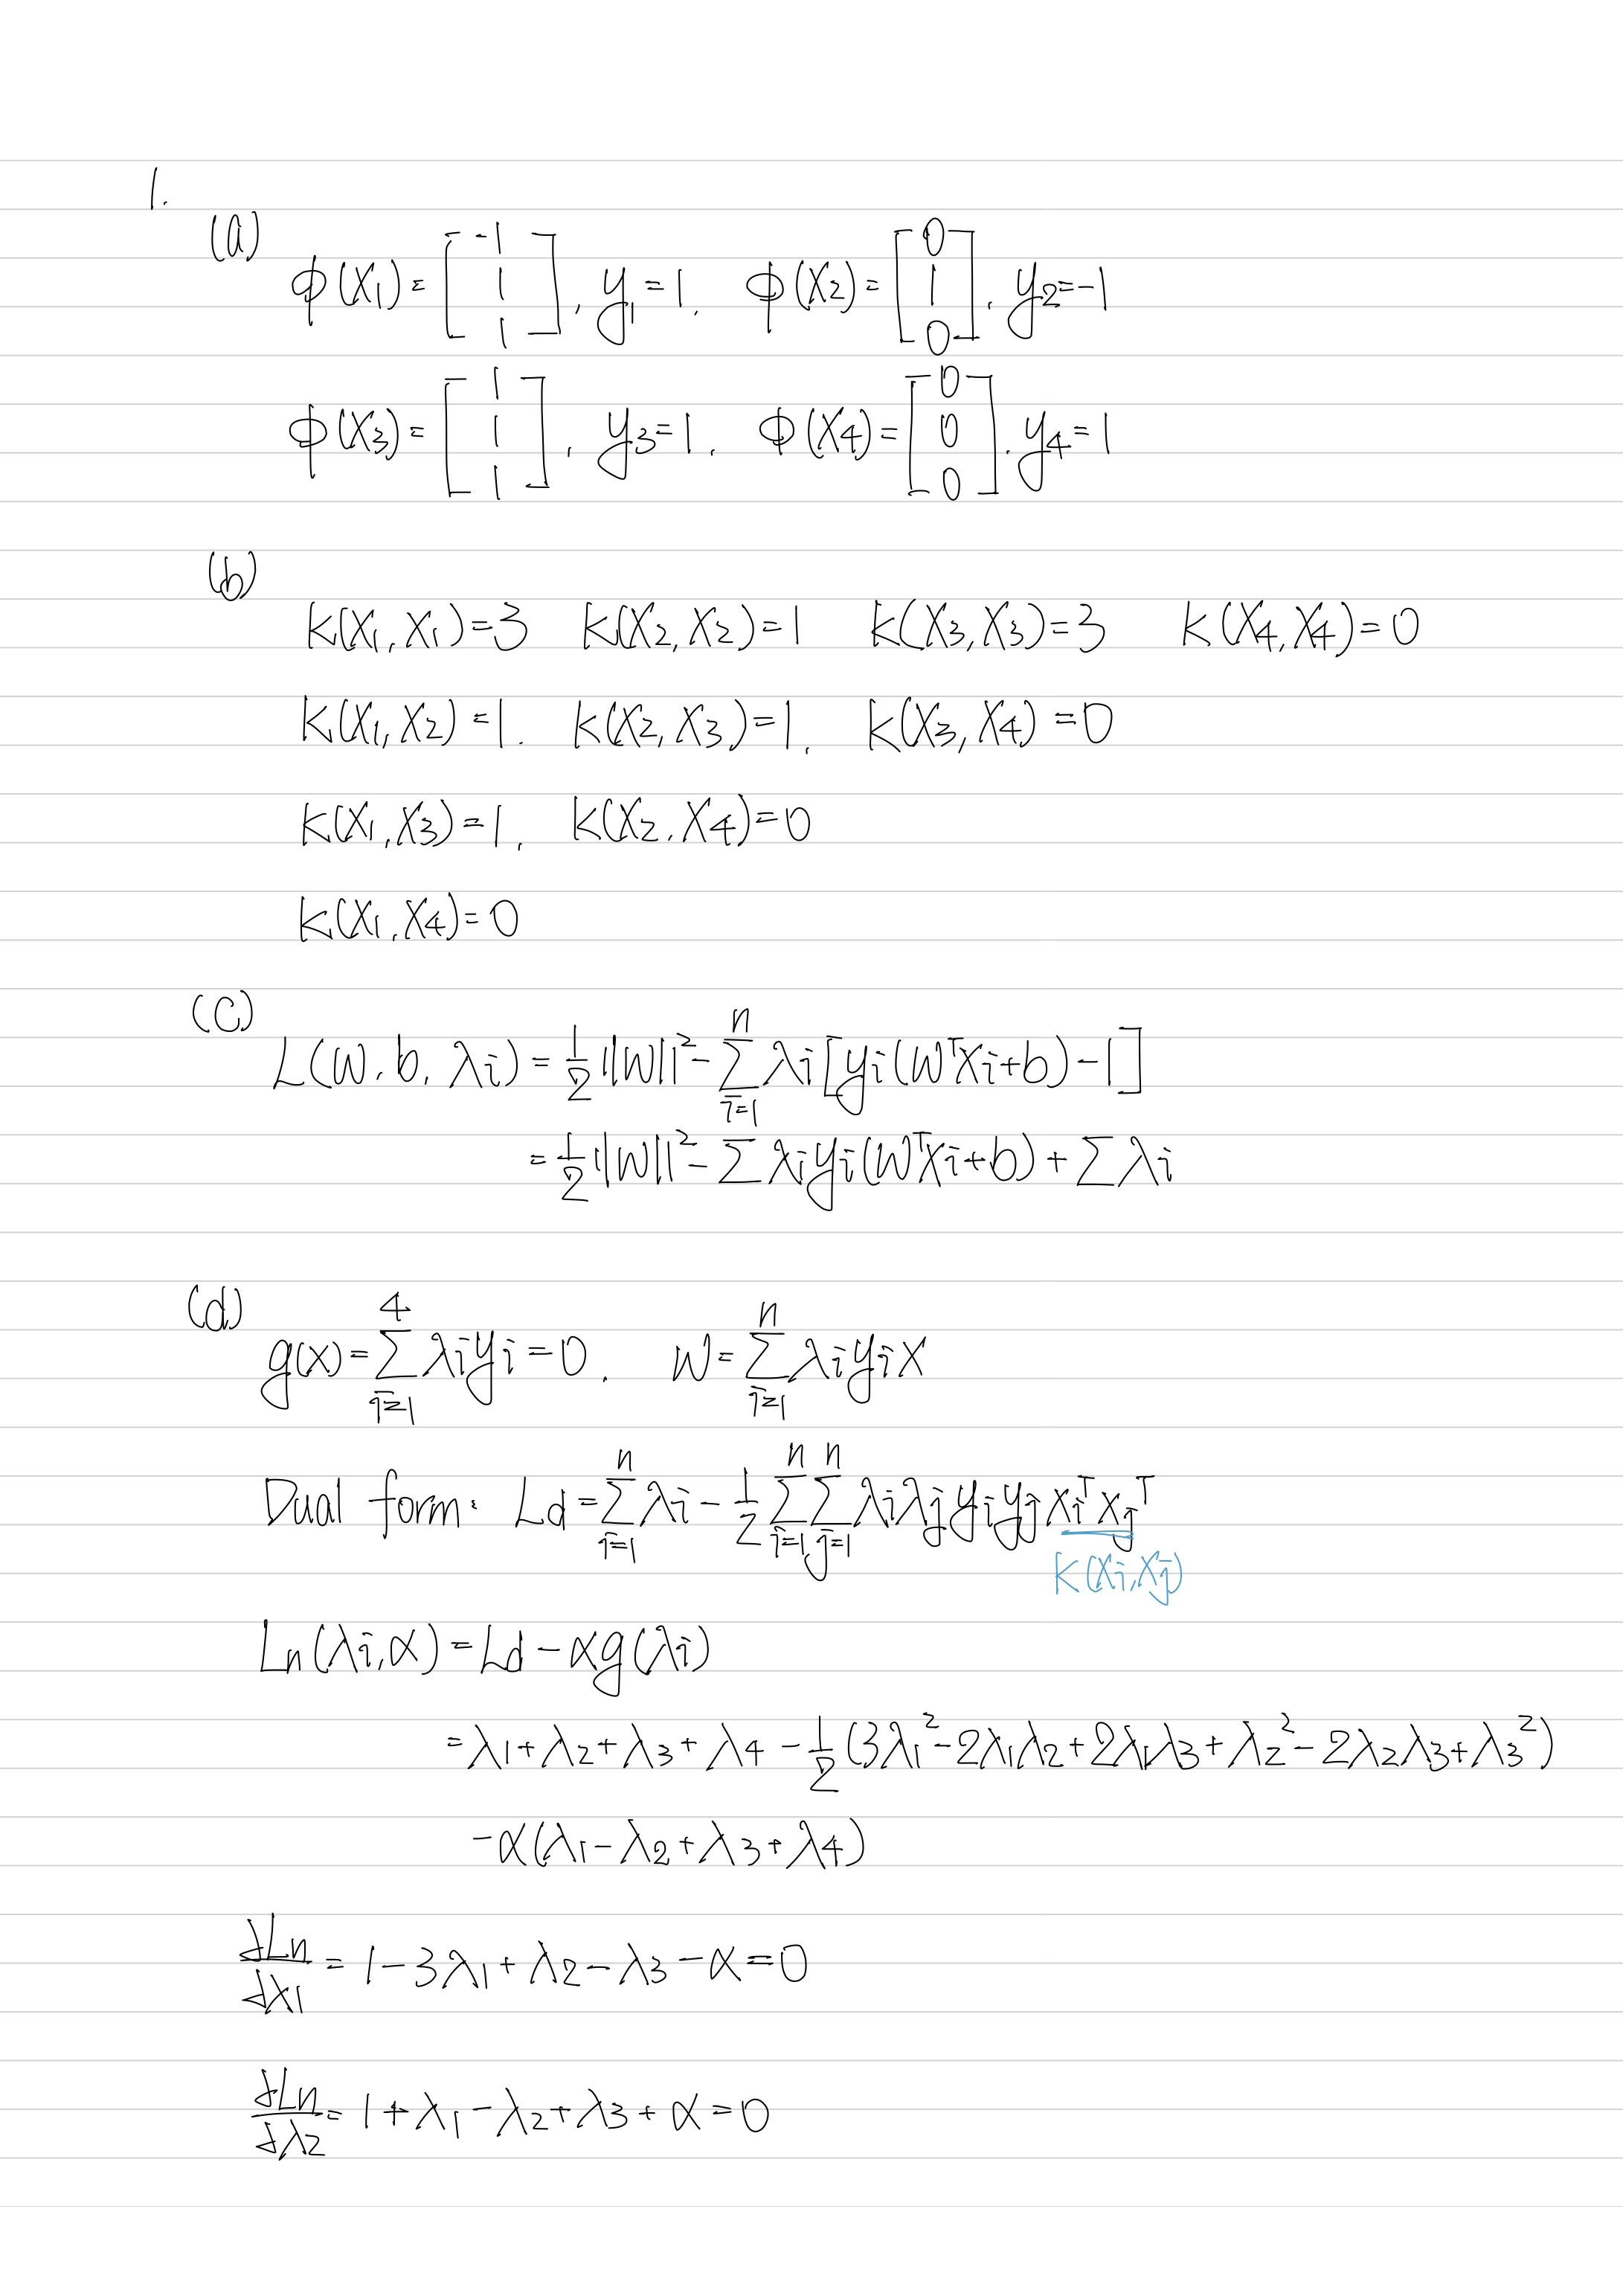 1.
(a)
φ(X1) = [-1 1 1], y1 = 1, φ(X2) = [0 1 0], y2 = -1
φ(X3) = [1 1 1], y3 = 1, φ(X4) = [0 0 0], y4 = 1
(b)
K(X1, X1) = 3 K(X2, X2) = 1 K(X3, X3) = 3 K(X4, X4) = 0
K(X1, X2) = 1. K(X2, X3) = 1, K(X3, X4) = 0
K(X1, X3) = 1, K(X2, X4) = 0
K(X1, X4) = 0
(c)
L(W, b, λi) = 1/2 ||W||² - Σ_{i=1}^{n} λi [yi(WᵀXi + b) - 1]
= 1/2 ||W||² - Σ λi yi (WᵀXi + b) + Σ λi
(d)
g(x) = Σ_{i=1}^{4} λi yi = 0, W = Σ_{i=1}^{n} λi yi X
Dual form: Ld = Σ_{i=1}^{n} λi - 1/2 Σ_{i=1}^{n} Σ_{j=1}^{n} λi λj yi yj Xiᵀ Xjᵀ
K(Xi, Xj)
Ln(λi, α) = Ld - αg(λi)
= λ1 + λ2 + λ3 + λ4 - 1/2 (3λ1² - 2λ1λ2 + 2λ1λ3 + λ2² - 2λ2λ3 + λ3²)
-α(λ1 - λ2 + λ3 + λ4)
∂Ln/∂λ1 = 1 - 3λ1 + λ2 - λ3 - α = 0
∂Ln/∂λ2 = 1 + λ1 - λ2 + λ3 + α = 0